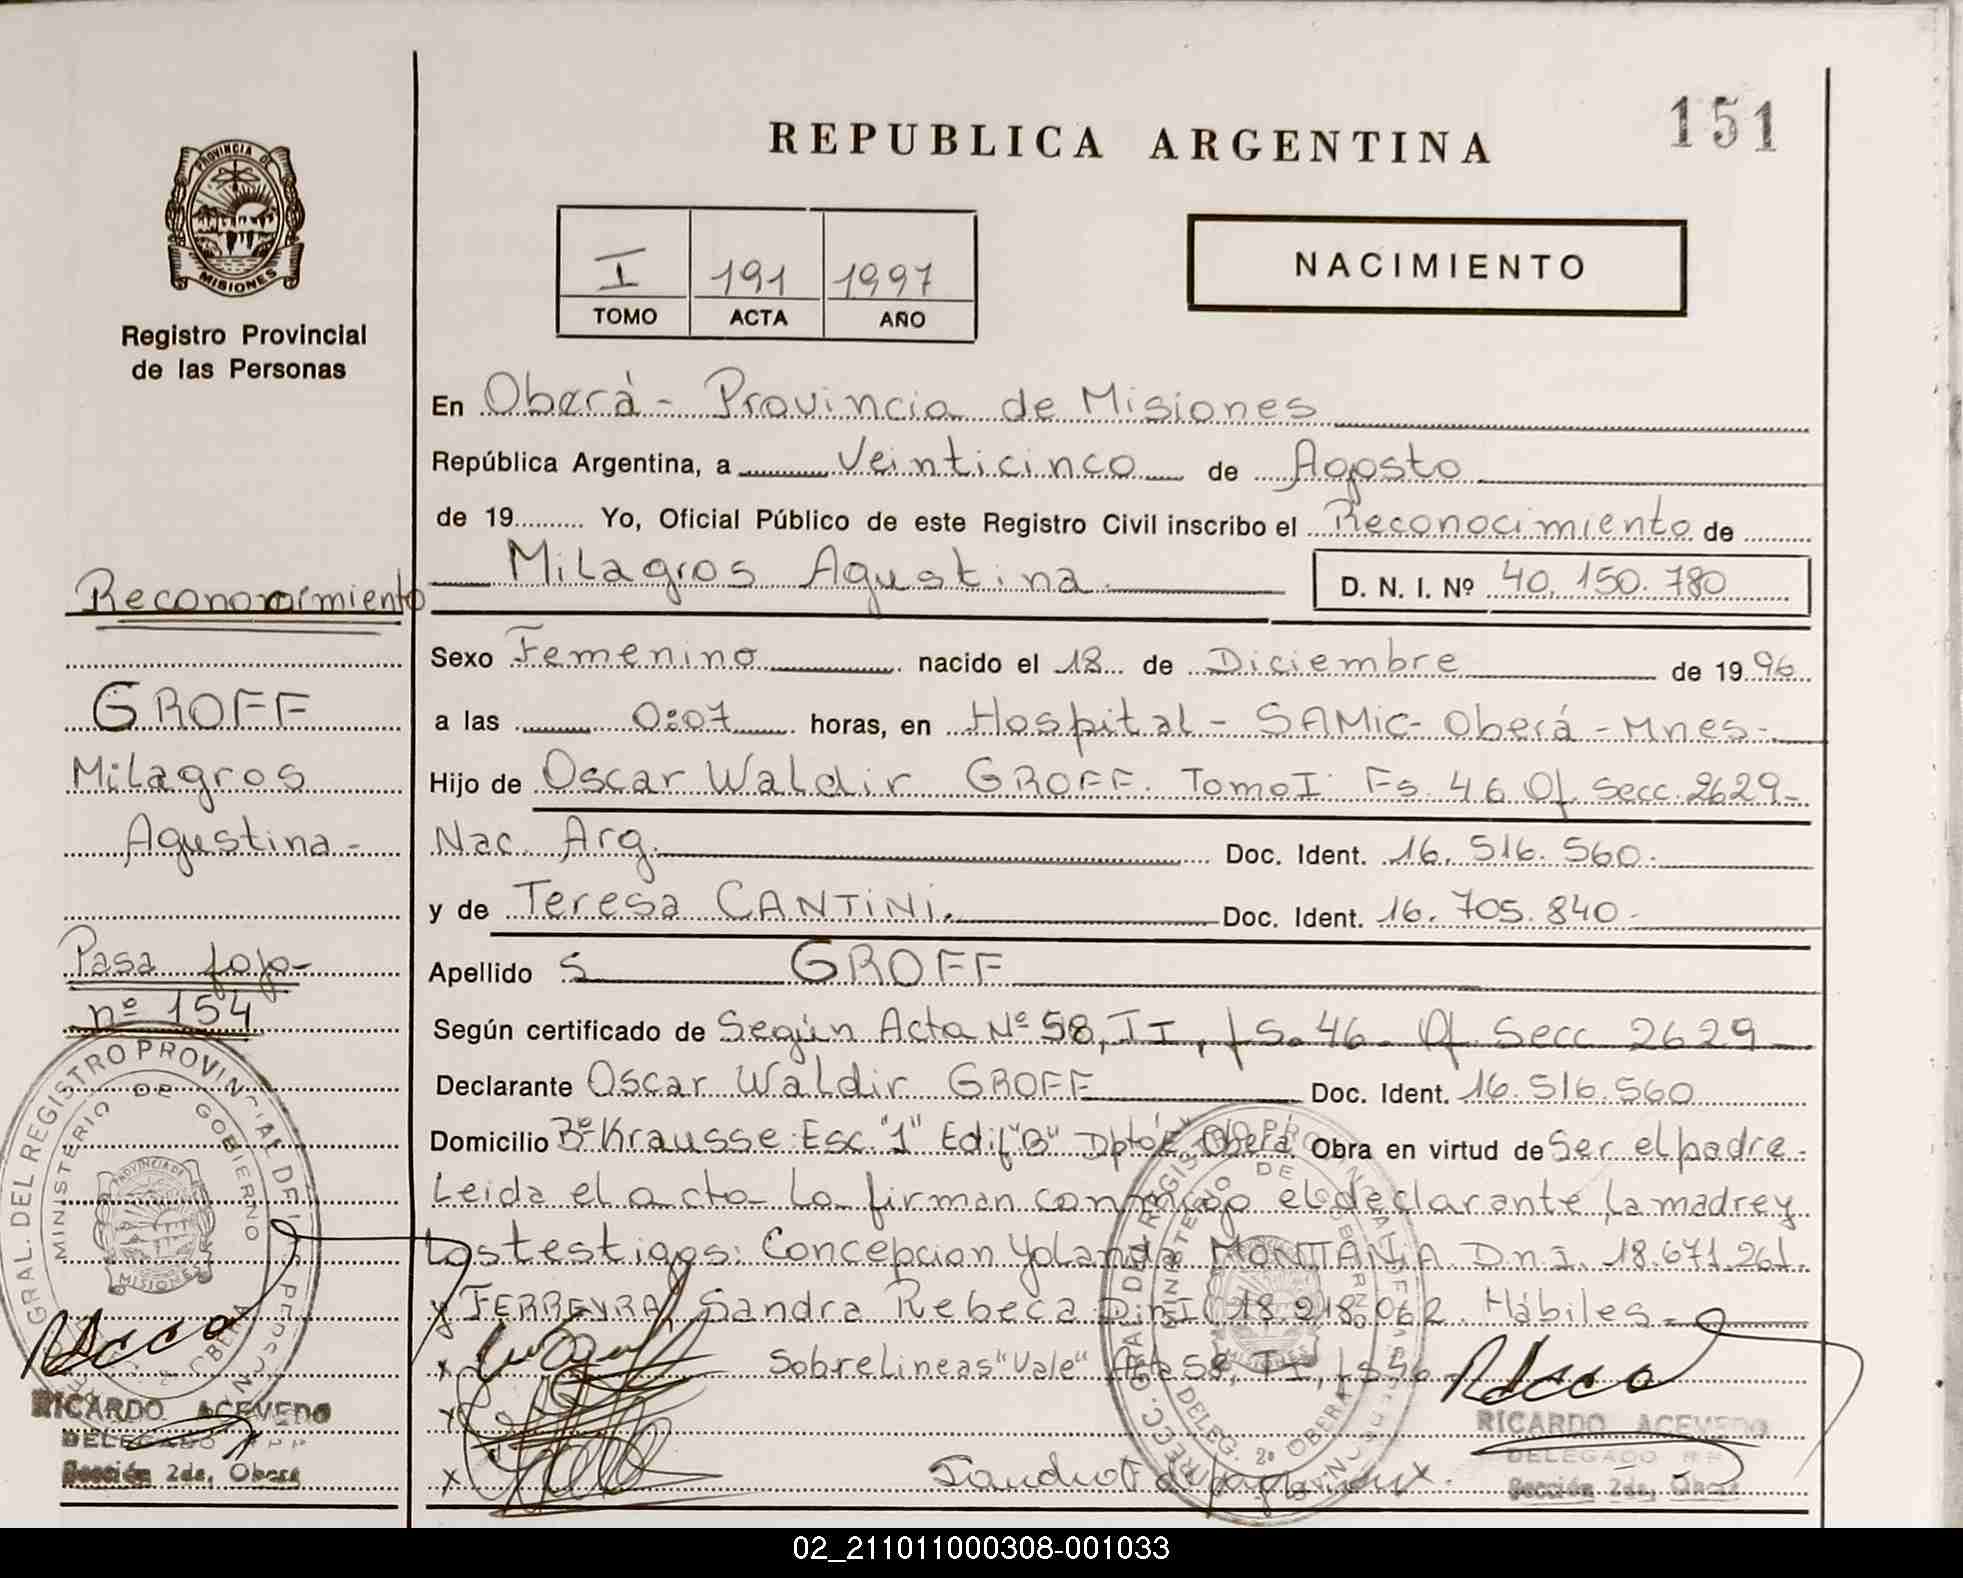 151
REPUBLICA ARGENTINA
PROVINCIA DE
MISIONES
Registro Provincial
de las Personas
I 191 1997
TOMO ACTA AÑO
NACIMIENTO
En Oberá - Provincia de Misiones
República Argentina, a Veinticinco de Agosto
de 19 Yo, Oficial Público de este Registro Civil inscribo el Reconocimiento de
Milagros Agustina D. N. I. Nº 40.150.780
Sexo Femenino nacido el 18 de Diciembre de 1996
a las 0:07 horas, en Hospital - SAMIC - Oberá - Mnes -
Hijo de Oscar Waldir GROFF. Tomo I Fs. 46 Of. Secc. 2629 -
Nac. Arg. Doc. Ident. 16.516.560.
y de Teresa CANTINI. Doc. Ident. 16.705.840.
Apellido s GROFF
Según certificado de Según Acta Nº 58, TI, fs. 46. Of. Secc 2629
Declarante Oscar Waldir GROFF Doc. Ident. 16.516.560
Domicilio Bº Krausse Esc. "1" Edif "B" Dpto Oberá. Obra en virtud de Ser el padre.
Leida el acta la firman conmigo el declarante, la madre y
Los testigos: Concepcion Yolanda D.n.I. 18.671.261.
y FERREYRA, Sandra Rebeca D.n.I. 18.218.062. Hábiles -
Sobrelineas "Vale" Acta 58, TI, fs 46
RICARDO ACEVEDO
DELEGADO
Sección 2da, Oberá
Reconocimiento
GROFF
Milagros
Agustina -
Pasa fojo -
nº 154
GRAL. DEL REGISTRO PROVINCIAL DE
MINISTERIO DE GOBIERNO
PROVINCIA DE
MISIONES
RICARDO ACEVEDO
DELEGADO
Sección 2da, Oberá
DELEG. 2º OBERA
02_211011000308-001033